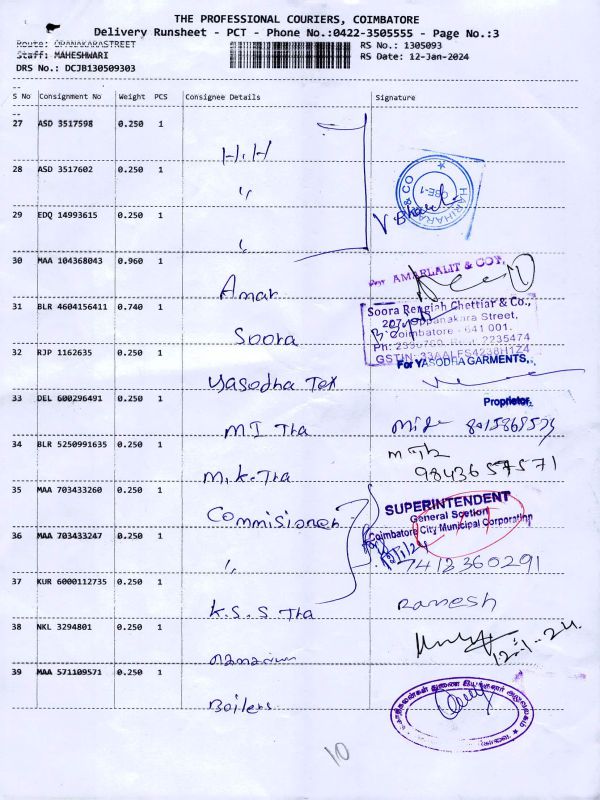 THE PROFESSIONAL COURIERS, COIMBATORE
Delivery Runsheet - PCT - Phone No.:0422-3505555 - Page No.:3
Route: OPANAKARASTREET
RS No.: 1305093
Staff: MAHESHWARI
RS Date: 12-Jan-2024
DRS No.: DCJB130509303
S No Consignment No Weight PCS Consignee Details Signature
27 ASD 3517598 0.250 1 H.H
28 ASD 3517602 0.250 1 "
HARIHARA & CO
CBE-1
29 EDQ 14993615 0.250 1 "
30 MAA 104368043 0.960 1 Amar
AMARLALIT & COT.
31 BLR 4604156411 0.740 1 Soora
Soora Rengiah Chettiar & Co.,
207, Oppanakara Street,
Coimbatore - 641 001.
32 RJP 1162635 0.250 1 Yasodha Tex
For YASODHA GARMENTS,
Proprietor
33 DEL 600296491 0.250 1 M I Tra
34 BLR 5250991635 0.250 1 M.K. Tra
9843657571
35 MAA 703433260 0.250 1 Commisioner
SUPERINTENDENT
General Scetion
Coimbatore City Municipal Corporation
36 MAA 703433247 0.250 1 "
7412360291
37 KUR 6000112735 0.250 1 K.S.S Tra
Ramesh
38 NKL 3294801 0.250 1
12-1-24
39 MAA 571109571 0.250 1 Boilers
10